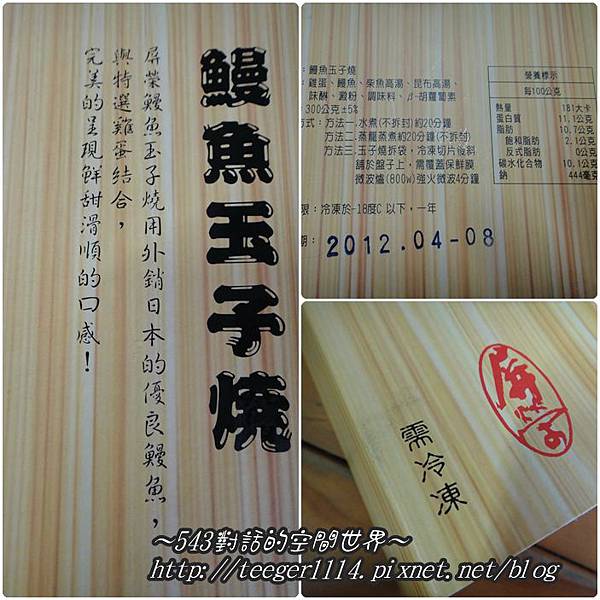 鰻魚玉子燒
屏榮鰻魚玉子燒用外銷日本的優良鰻魚，
與特選雞蛋結合，
完美的呈現鮮甜滑順的口感！
：鰻魚玉子燒
：雞蛋、鰻魚、柴魚高湯、昆布高湯、
味醂、澱粉、調味料、β-胡蘿蔔素
300公克±5%
方式：方法一.水煮(不拆封)約20分鐘
方法二.蒸籠蒸煮約20分鐘(不拆封)
方法三.玉子燒拆袋，冷凍切片後斜
鋪於盤子上，需覆蓋保鮮膜
微波爐(800w)強火微波4分鐘
限：冷凍於-18度C 以下，一年
期：2012.04-08
營養標示
每100公克
熱量 181大卡
蛋白質 11.1公克
脂肪 10.7公克
飽和脂肪 2.1公克
反式脂肪 0公克
碳水化合物 10.1公克
鈉 444毫克
屏榮
需冷凍
～543對話的空間世界～
http://teeger1114.pixnet.net/blog